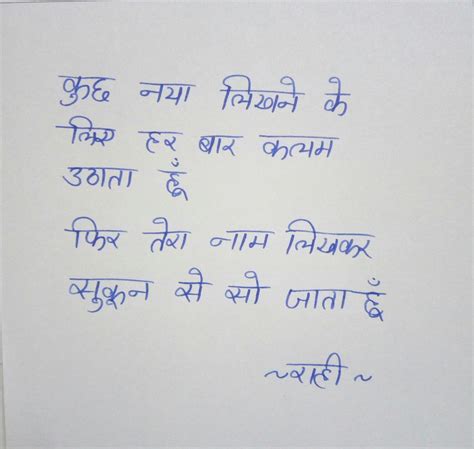 कुछ नया लिखने के
लिए हर बार कलम
उठाता हूँ
फिर तेरा नाम लिखकर
सुकून से सो जाता हूँ
~राही~